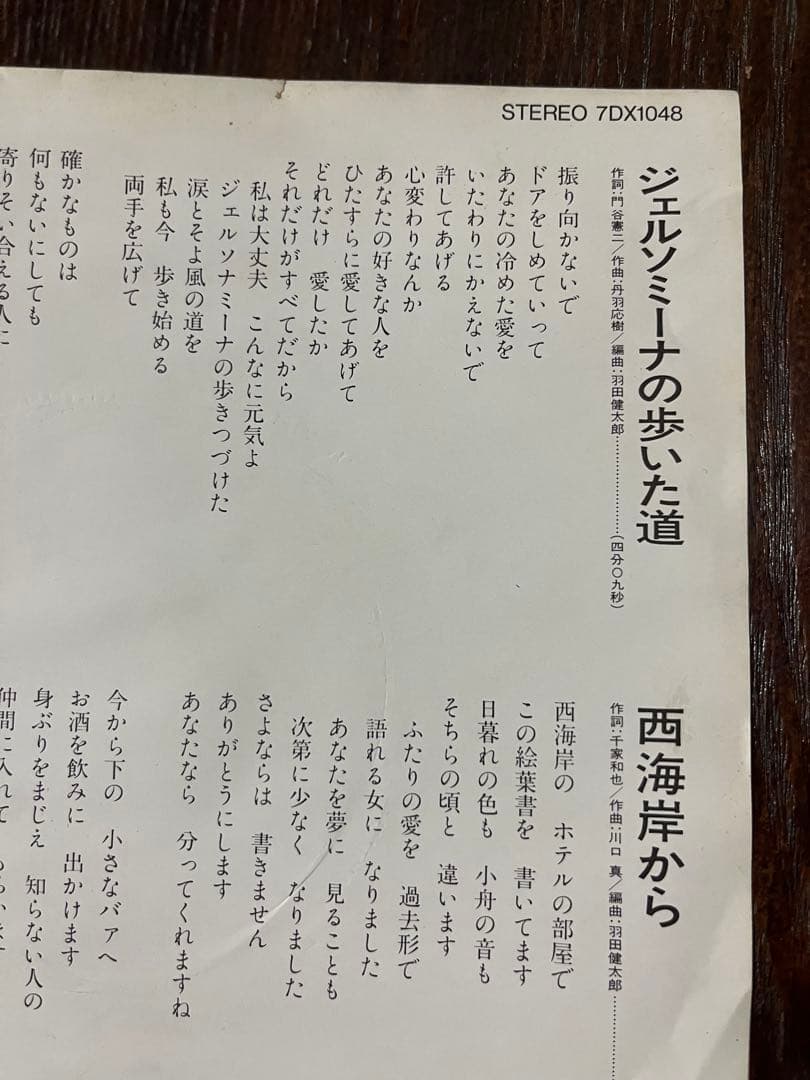 STEREO 7DX1048
ジェルソミーナの歩いた道
作詞:門谷憲二/作曲:丹羽応樹/編曲:羽田健太郎……………………(四分〇九秒)
振り向かないで
ドアをしめていって
あなたの冷めた愛を
いたわりにかえないで
許してあげる
心変わりなんか
あなたの好きな人を
ひたすらに愛してあげて
どれだけ 愛したか
それだけがすべてだから
私は大丈夫 こんなに元気よ
ジェルソナミーナの歩きつづけた
涙とそよ風の道を
私も今 歩き始める
両手を広げて
確かなものは
何もないにしても
寄りそい合える人に
西海岸から
作詞:千家和也/作曲:川口 真/編曲:羽田健太郎……………
西海岸の ホテルの部屋で
この絵葉書を 書いてます
日暮れの色も 小舟の音も
そちらの頃と 違います
ふたりの愛を 過去形で
語れる女に なりました
あなたを夢に 見ることも
次第に少なく なりました
さよならは 書きません
ありがとうにします
あなたなら 分ってくれますね
今から下の 小さなバァへ
お酒を飲みに 出かけます
身ぶりをまじえ 知らない人の
仲間に入れて もらいます